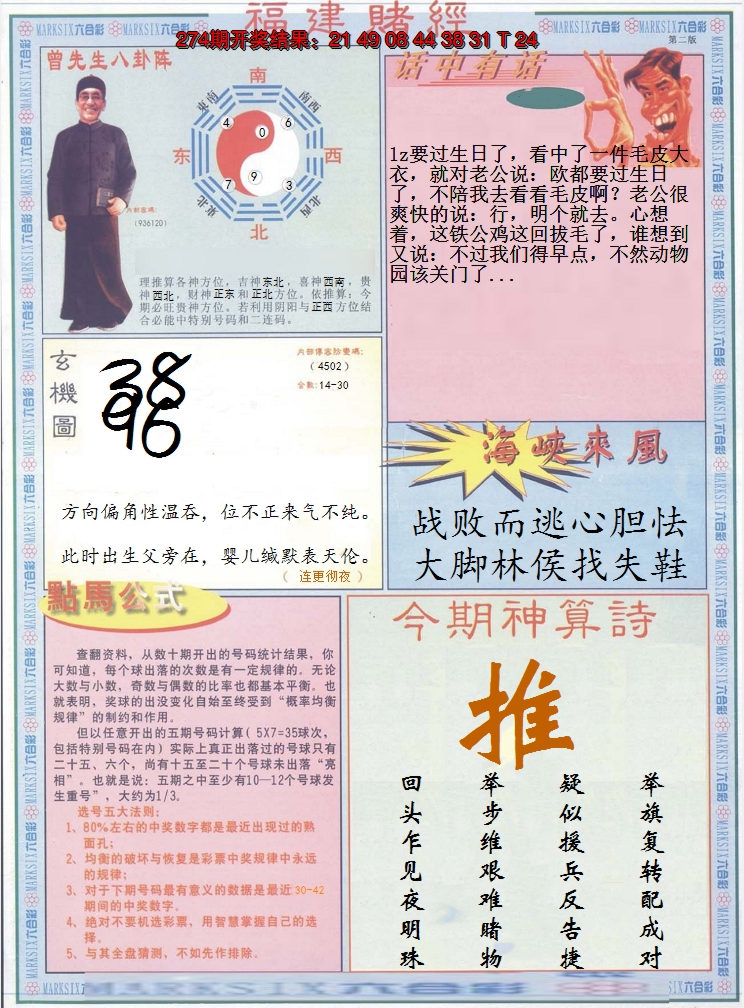 福建賭經
274期开奖结果：21 49 08 44 38 31 T 24
MARKSIX六合彩
第二版
曾先生八卦阵
南
东南
南西
4
0
6
东
西
7
9
3
東北
北西
北
内部密碼:
(936120)
理推算各神方位，吉神东北，喜神西南，贵
神西北，财神正东和正北方位。依推算：今
期必旺贵神方位。若利用阴阳与正西方位结
合必能中特别号码和二连码。
话中有话
lz要过生日了，看中了一件毛皮大
衣，就对老公说：欧都要过生日
了，不陪我去看看毛皮啊？老公很
爽快的说：行，明个就去。心想
着，这铁公鸡这回拔毛了，谁想到
又说：不过我们得早点，不然动物
园该关门了...
玄機圖
38
96
(4502)
合数:14-30
方向偏角性温吞，位不正来气不纯。
此时出生父旁在，婴儿缄默表天伦。
（ 连更彻夜 ）
海峽來風
战败而逃心胆怯
大脚林侯找失鞋
點馬公式
查翻资料，从数十期开出的号码统计结果，你
可知道，每个球出落的次数是有一定规律的。无论
大数与小数，奇数与偶数的比率也都基本平衡。也
就表明，奖球的出没变化自始至终受到“概率均衡
规律”的制约和作用。
但以任意开出的五期号码计算( 5X7=35球次，
包括特别号码在内) 实际上真正出落过的号球只有
二十五、六个，尚有十五至二十个号球未出落“亮
相”。也就是说：五期之中至少有10—12个号球发
生重号”，大约为1/3。
选号五大法则：
1、80%左右的中奖数字都是最近出现过的熟
面孔；
2、均衡的破坏与恢复是彩票中奖规律中永远
的规律；
3、对于下期号码最有意义的数据是最近30-42
期间的中奖数字。
4、绝对不要机选彩票，用智慧掌握自己的选
择。
5、与其全盘猜测，不如先作排除。
今期神算詩
推
回头乍见夜明珠
举步维艰难赌物
疑似援兵反告捷
举旗复转配成对